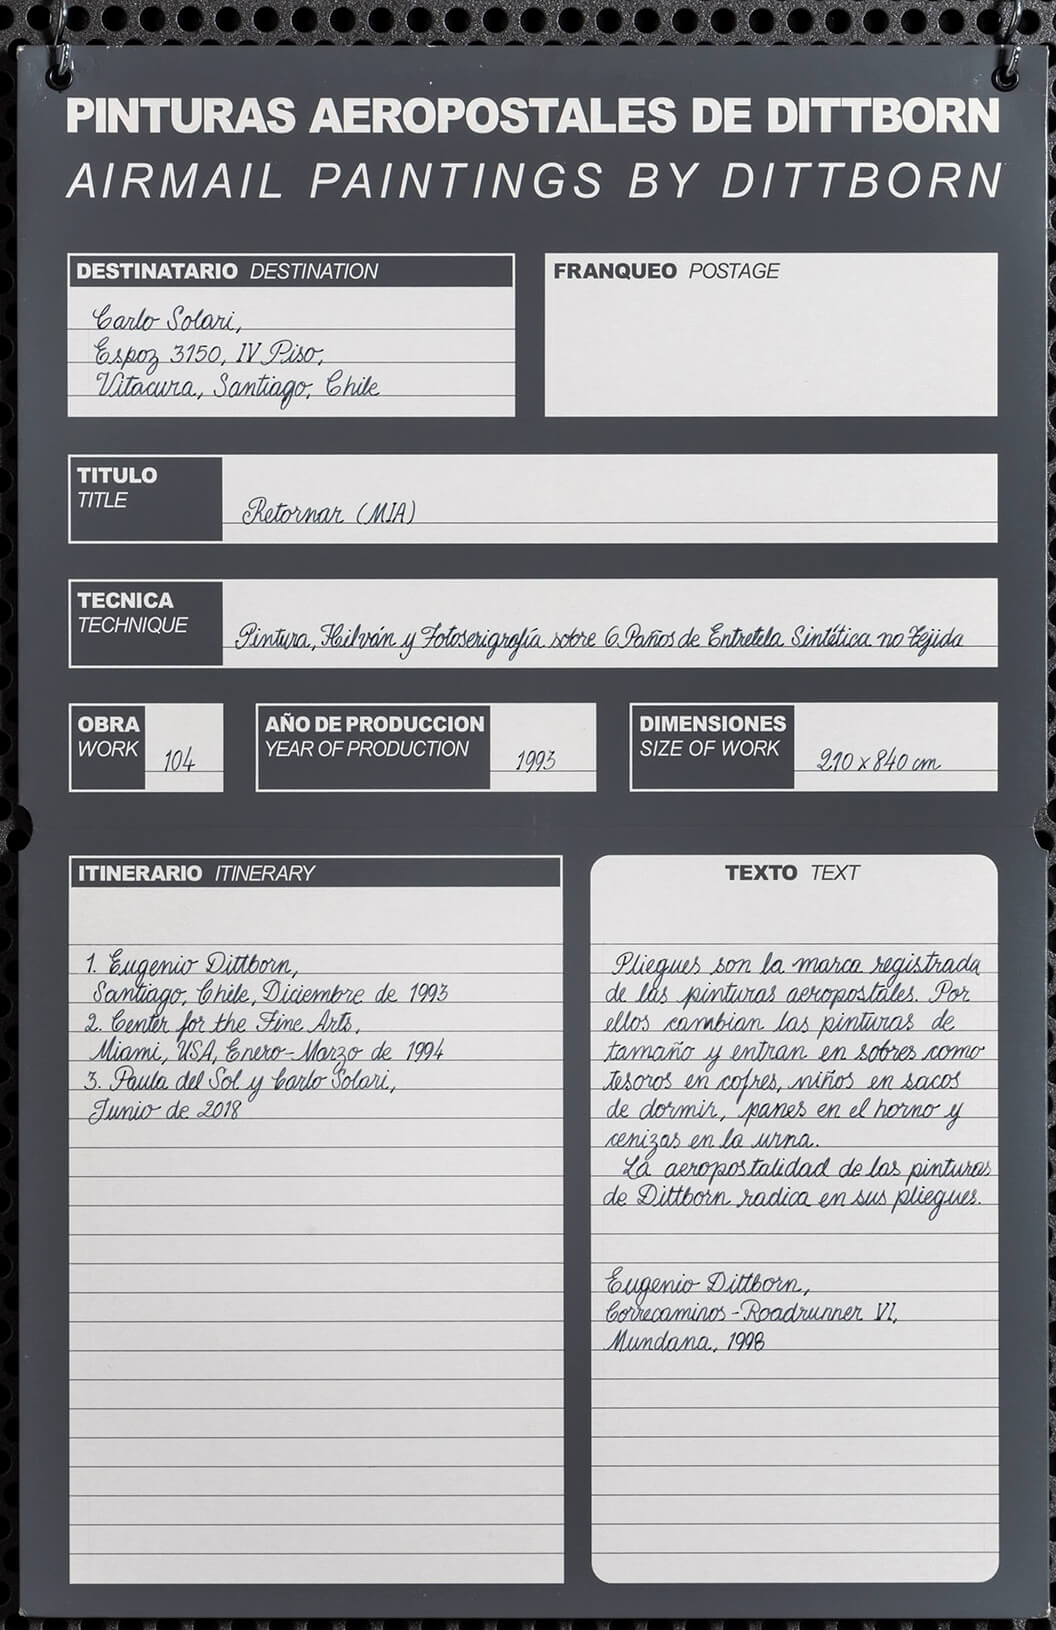 PINTURAS AEROPOSTALES DE DITTBORN
AIRMAIL PAINTINGS BY DITTBORN
DESTINATARIO DESTINATION
Carlo Solari,
Espoz 3150, IV Piso,
Vitacura, Santiago, Chile
FRANQUEO POSTAGE
TITULO
TITLE
Retornar (MIA)
TECNICA
TECHNIQUE
Pintura, Hilván y Fotoserigrafía sobre 6 Paños de Entretela Sintética no Tejida
OBRA
WORK
104
AÑO DE PRODUCCION
YEAR OF PRODUCTION
1993
DIMENSIONES
SIZE OF WORK
210 x 840 cm
ITINERARIO ITINERARY
1. Eugenio Dittborn,
Santiago, Chile, Diciembre de 1993
2. Center for the Fine Arts,
Miami, USA, Enero-Marzo de 1994
3. Paula del Sol y Carlo Solari,
Junio de 2018
TEXTO TEXT
Pliegues son la marca registrada
de las pinturas aeropostales. Por
ellos cambian las pinturas de
tamaño y entran en sobres como
tesoros en cofres, niños en sacos
de dormir, panes en el horno y
cenizas en la urna.
La aeropostalidad de las pinturas
de Dittborn radica en sus pliegues.
Eugenio Dittborn,
Correcaminos-Roadrunner VI,
Mundana, 1998